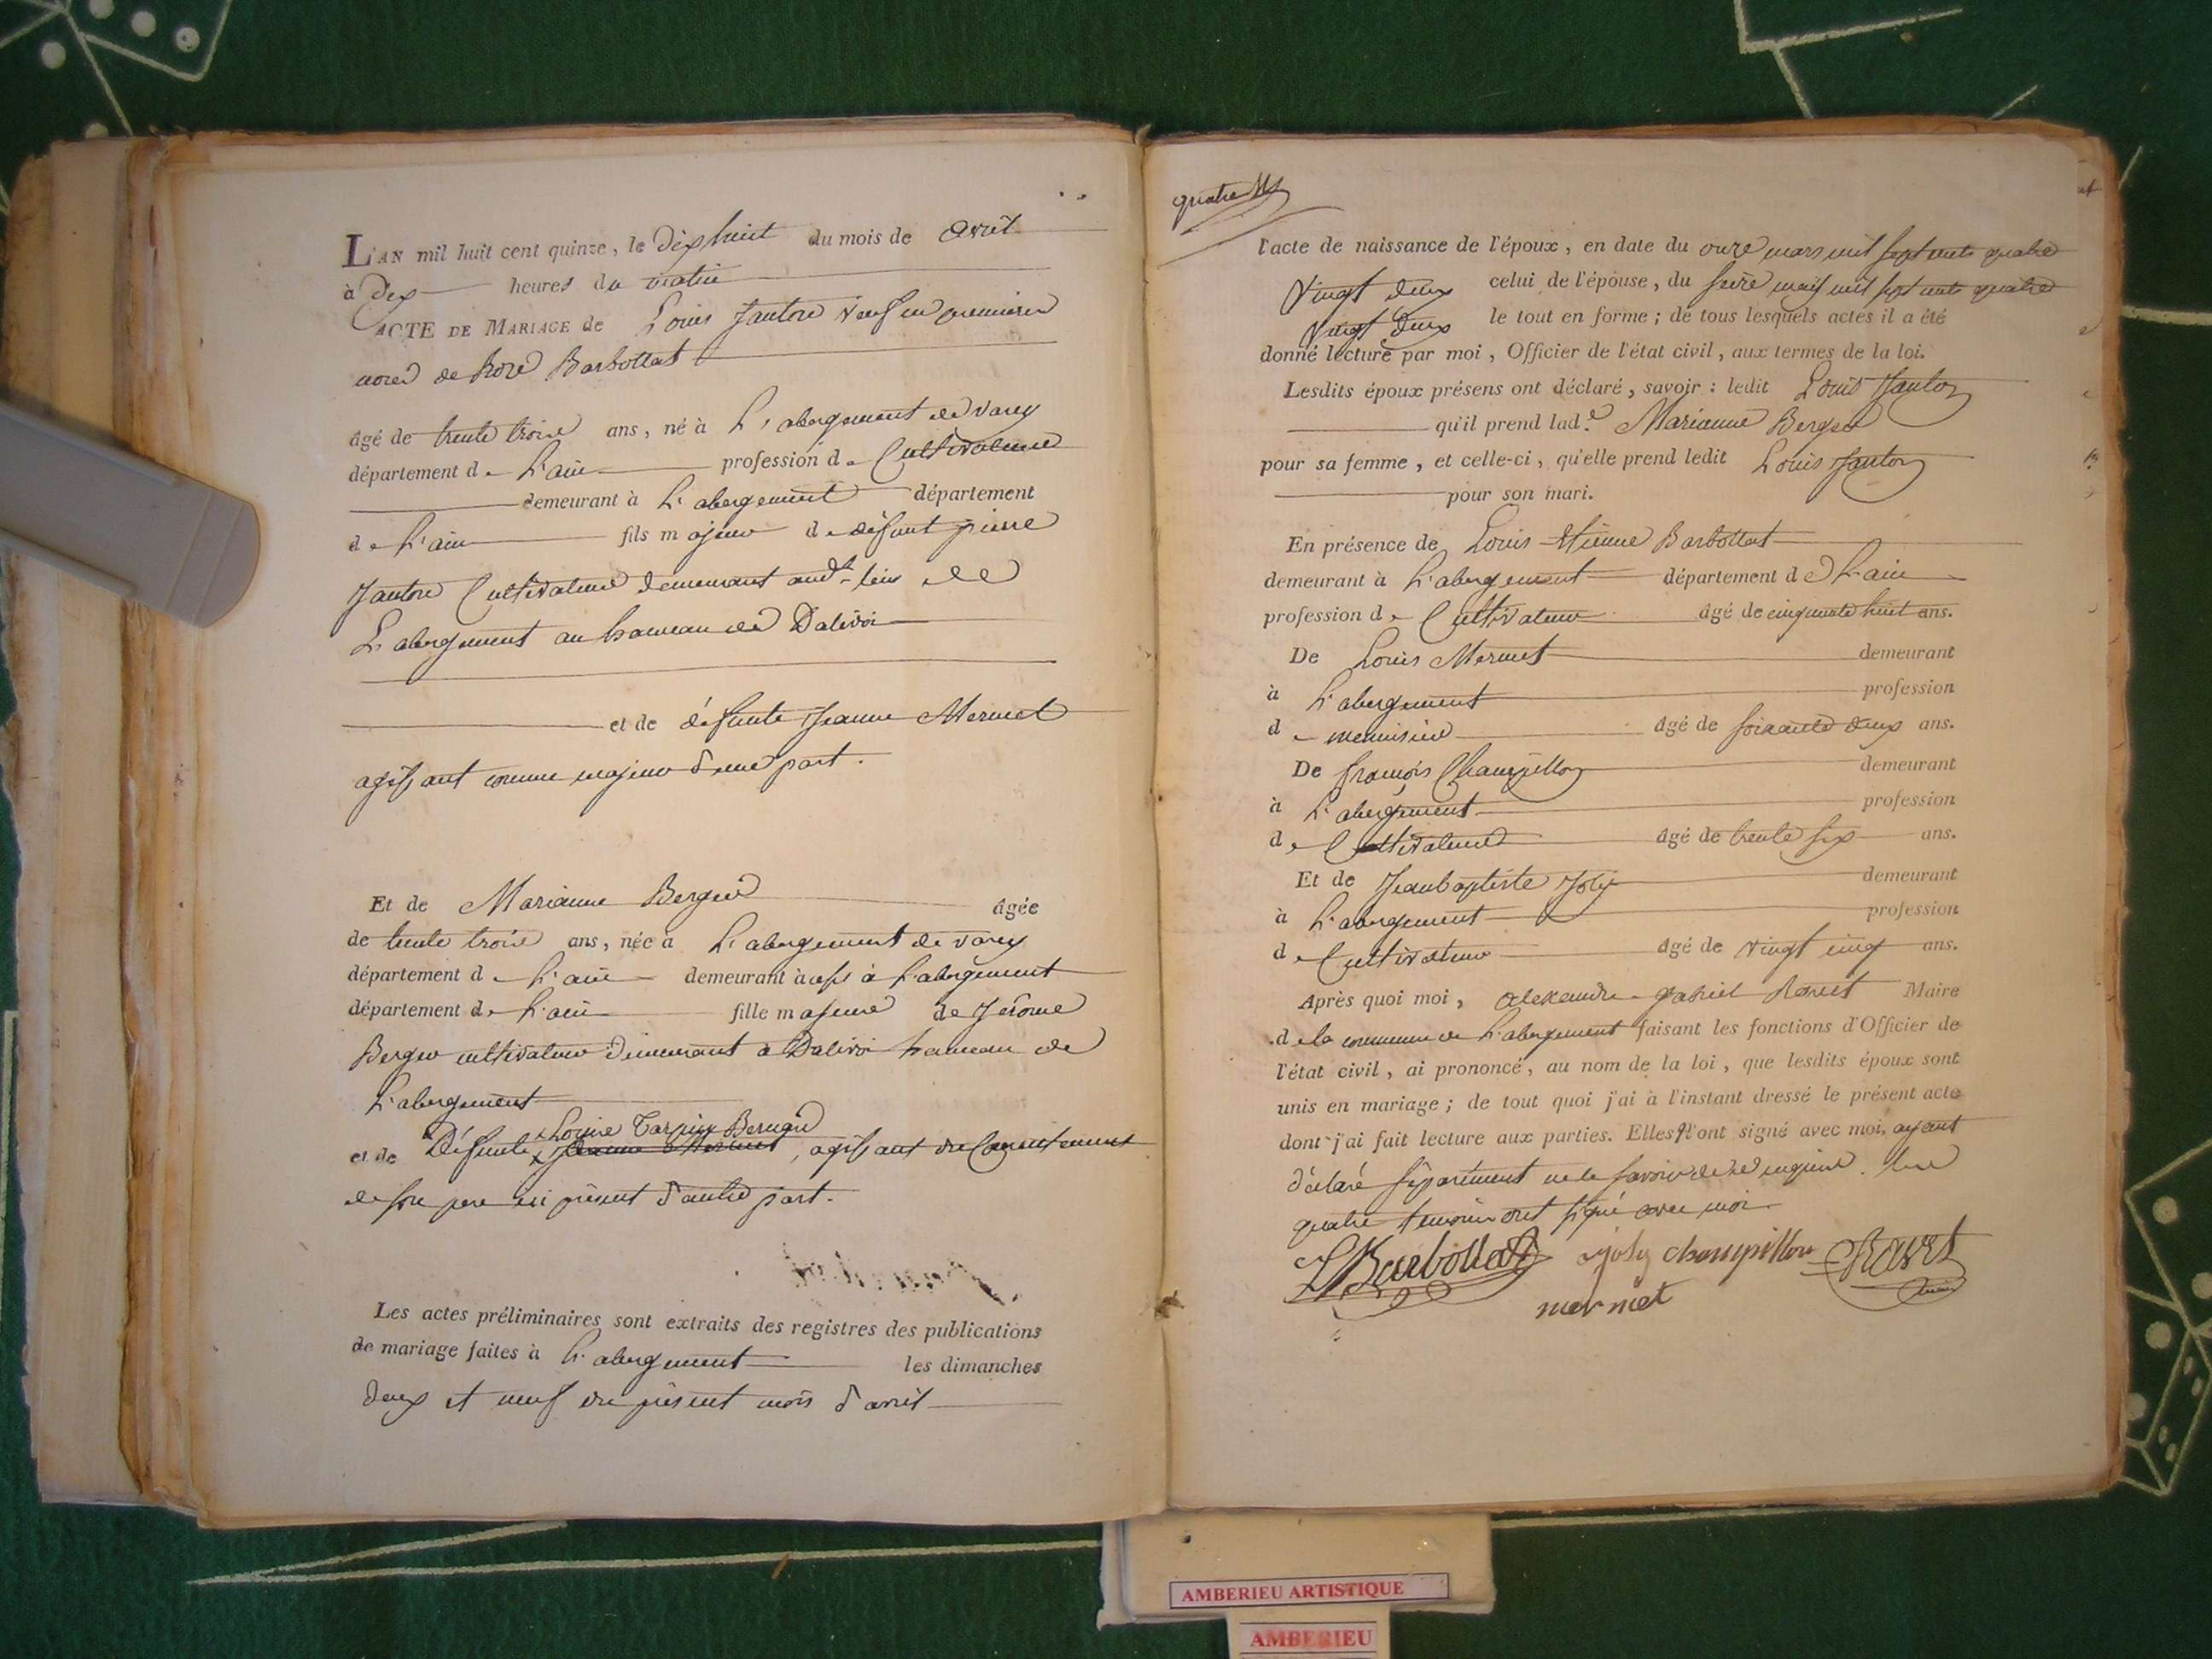 L'AN mil huit cent quinze, le dix huit du mois de avril
à dix heures du matin
ACTE DE MARIAGE de Louis Janton veuf en premiere
noce de Rose Barbollat
âgé de trente trois ans, né à L'abergement de varey
département de L'ain profession de Cultivateur
demeurant à L'abergement département
de L'ain fils majeur de défunt pierre
Janton Cultivateur demeurant audt. lieu de
L'abergement au hameau de Dalivoi
et de défunte Jeanne Mermet
agissant comme majeur d'une part.
Et de Marianne Berger âgée
de trente trois ans, née à L'abergement de varey
département de L'ain demeurant à L'abergement
département de L'ain fille majeure de Jérome
Berger cultivateur demeurant à Dalivoi hameau de
L'abergement
Louise Berger
et de Défunte Jeanne Mermet, agissant du Consentement
de son pere ici présent d'autre part.
Les actes préliminaires sont extraits des registres des publications
de mariage faites à L'abergement les dimanches
deux et neuf du présent mois d'avril
quatre
l'acte de naissance de l'époux, en date du onze mars mil sept cents quatre
Vingt deux celui de l'épouse, du seize mai mil sept cents quatre
Vingt deux le tout en forme ; de tous lesquels actes il a été
donné lecture par moi, Officier de l'état civil, aux termes de la loi.
Lesdits époux présens ont déclaré, savoir : ledit Louis Janton
qu'il prend lad.e Marianne Berger
pour sa femme, et celle-ci, qu'elle prend ledit Louis Janton
pour son mari.
En présence de Louis Etienne Barbollat
demeurant à L'abergement département de L'ain
profession de Cultivateur âgé de cinquante huit ans.
De Louis Mermet demeurant
à L'abergement profession
de menuisier âgé de soixante deux ans.
De françois Champillon demeurant
à L'abergement profession
de Cultivateur âgé de trente six ans.
Et de Jeanbaptiste Joly demeurant
à L'abergement profession
de Cultivateur âgé de vingt cinq ans.
Après quoi moi, alexandre gabriel Ravet Maire
de la commune de L'abergement faisant les fonctions d'Officier de
l'état civil, ai prononcé, au nom de la loi, que lesdits époux sont
unis en mariage ; de tout quoi j'ai à l'instant dressé le présent acte
dont j'ai fait lecture aux parties. Elles n'ont signé avec moi, ayant
déclaré séparément ne le savoir de ce enquis. Les
quatre temoins ont signé avec moi.
L Barbollat joly champillon Ravet
mermet
AMBERIEU ARTISTIQUE
AMBERIEU